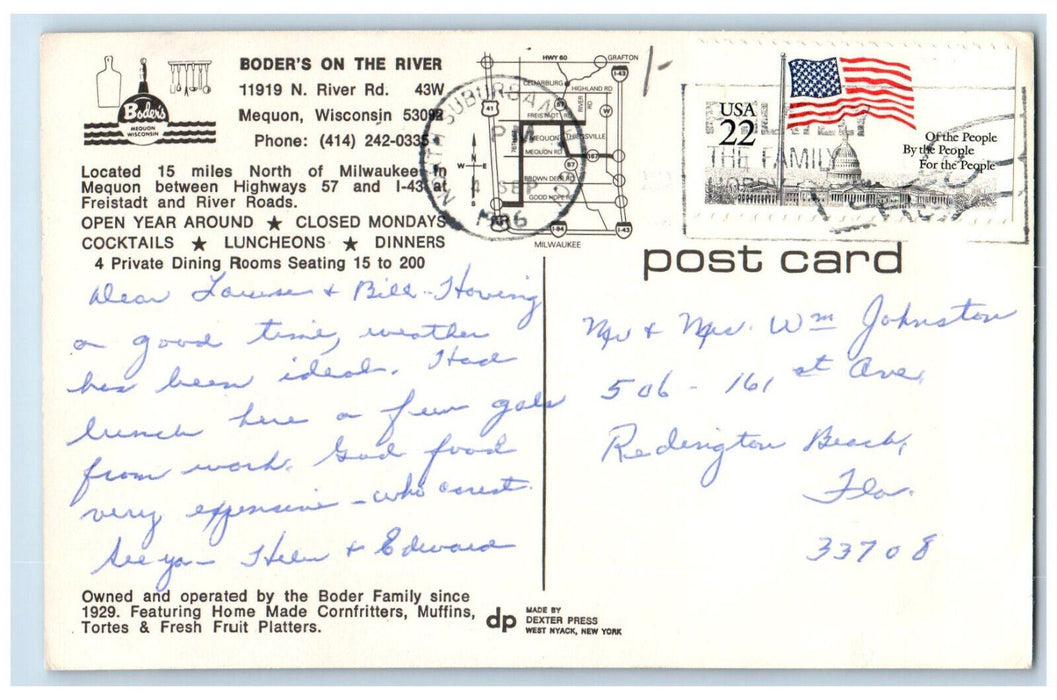 BODER'S ON THE RIVER
11919 N. River Rd. 43W
Mequon, Wisconsin 53092
Phone: (414) 242-0335
Boder's
MEQUON
WISCONSIN
Located 15 miles North of Milwaukee in
Mequon between Highways 57 and I-43 at
Freistadt and River Roads.
OPEN YEAR AROUND ★ CLOSED MONDAYS
COCKTAILS ★ LUNCHEONS ★ DINNERS
4 Private Dining Rooms Seating 15 to 200
HWY 60
GRAFTON
I-43
CEDARBURG
HIGHLAND RD
RIVER RD
FREISTADT RD
41
MEQUON
THIENSVILLE
MEQUON RD
167
57
BROWN DEER RD
GOOD HOPE RD
N
W
E
S
I-94
I-43
MILWAUKEE
SUBURBAN
PM
4 SEP
1986
USA
22
Of the People
By the People
For the People
THE FAMILY
post card
Dear Louise & Bill - Having
a good time, weather
has been ideal. Had
lunch here a few gals
from work. Good food
very expensive - who cares.
See ya - Helen & Edward
Mr & Mrs. Wm Johnston
506 - 161 st Ave,
Redington Beach,
Fla.
33708
Owned and operated by the Boder Family since
1929. Featuring Home Made Cornfritters, Muffins,
Tortes & Fresh Fruit Platters.
dp
MADE BY
DEXTER PRESS
WEST NYACK, NEW YORK